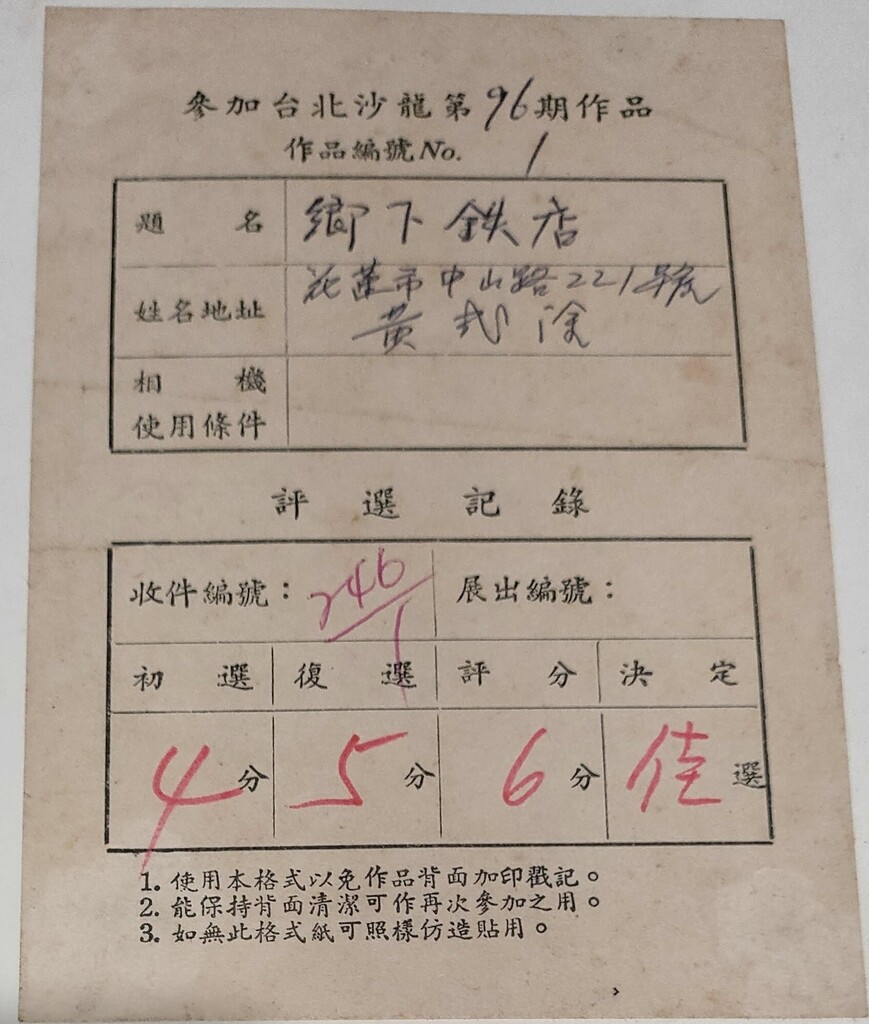 參加台北沙龍第96期作品
作品編號No. 1
題名 鄉下鉄店
姓名地址 花蓮市中山路221號
黃式
相機
使用條件
評選記錄
收件編號：246/1 展出編號：
初選 復選 評分 決定
4分 5分 6分 佳選
1. 使用本格式以免作品背面加印戳記。
2. 能保持背面清潔可作再次參加之用。
3. 如無此格式紙可照樣仿造貼用。